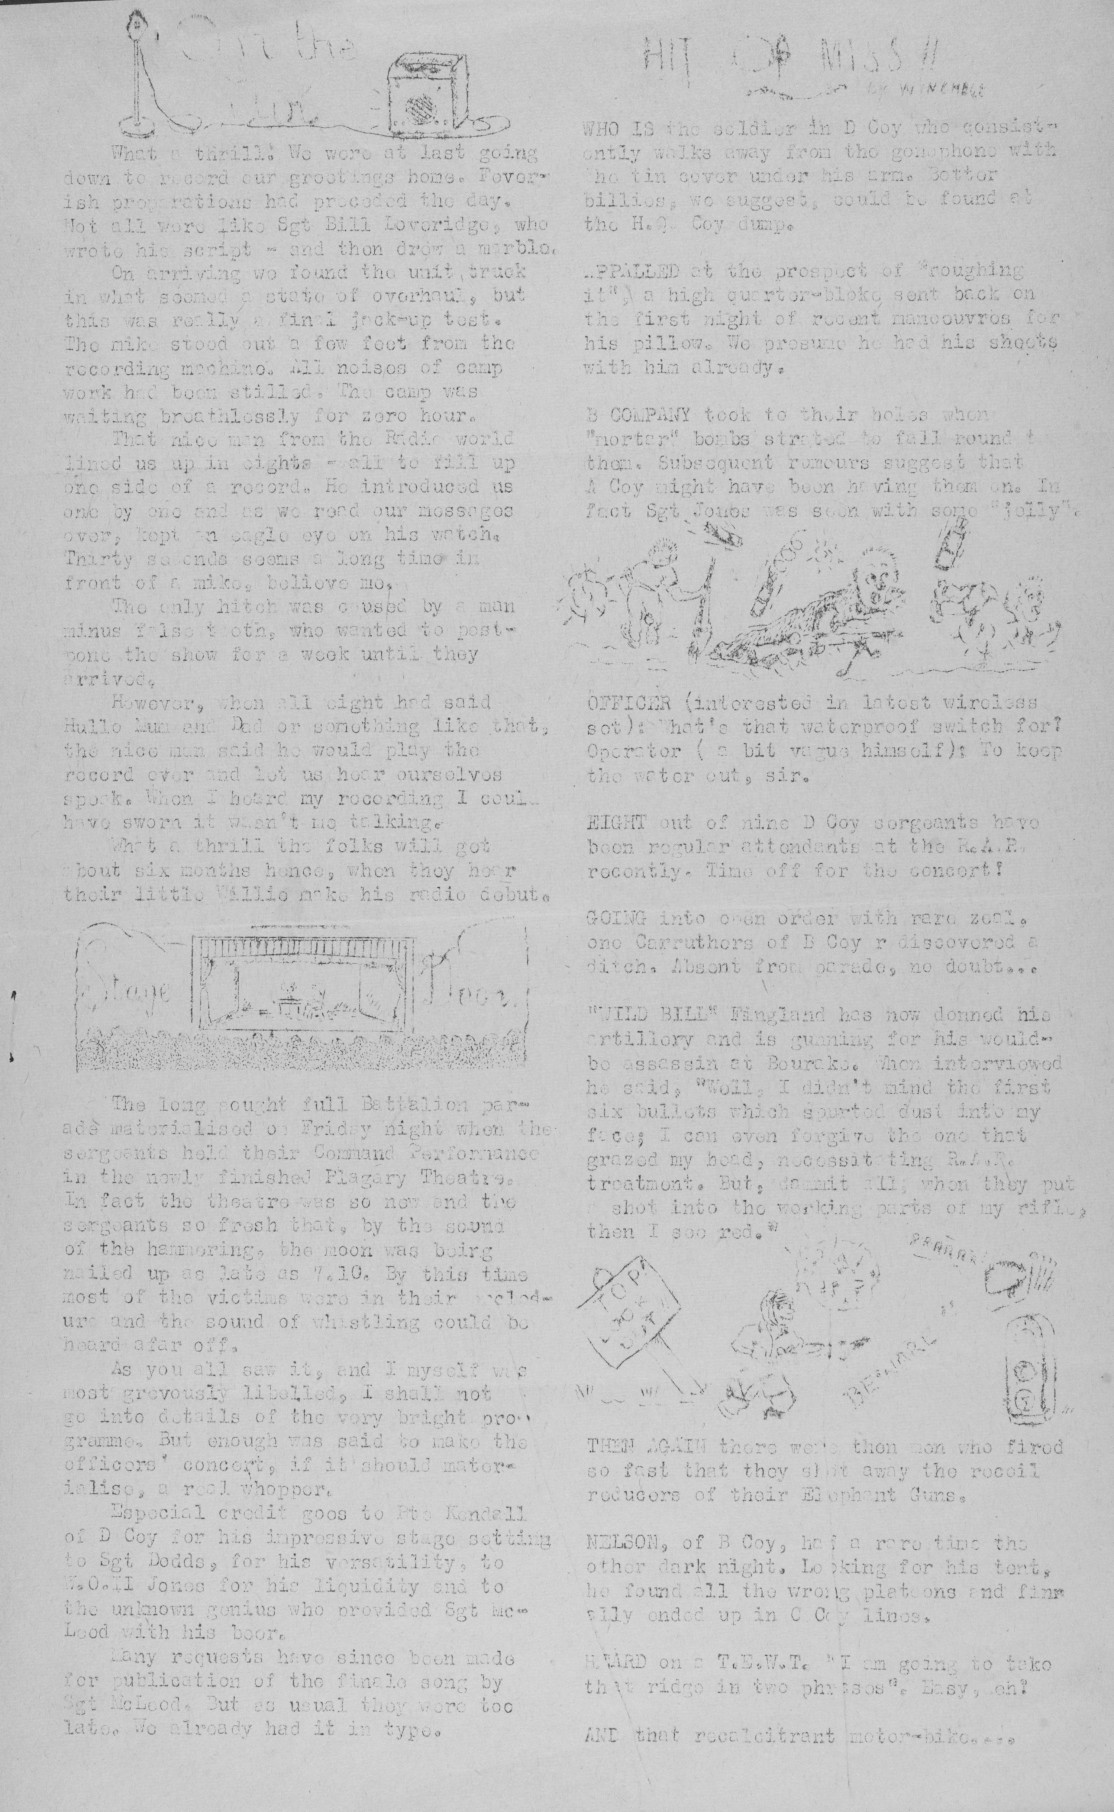 On the
Air.
What a thrill! We were at last going
down to record our greetings home. Fever-
ish preparations had preceded the day.
Not all were like Sgt Bill Loveridge, who
wrote his script - and then drew a marble.
On arriving we found the unit truck
in what seemed a state of overhaul, but
this was really a final jack-up test.
The mike stood out a few feet from the
recording machine. All noises of camp
work had been stilled. The camp was
waiting breathlessly for zero hour.
That nice man from the Radio world
lined us up in eights - all to fill up
one side of a record. He introduced us
one by one and as we read our messages
over, kept an eagle eye on his watch.
Thirty seconds seems a long time in
front of a mike, believe me.
The only hitch was caused by a man
minus false teeth, who wanted to post-
pone the show for a week until they
arrived.
However, when all eight had said
Hullo Mum and Dad or something like that,
the nice man said he would play the
record over and let us hear ourselves
speak. When I heard my recording I could
have sworn it wasn't me talking.
What a thrill the folks will get
about six months hence, when they hear
their little Willie make his radio debut.
Stage Door
The long sought full Battalion par-
ade materialised on Friday night when the
sergeants held their Command Performance
in the newly finished Plagary Theatre.
In fact the theatre was so new and the
sergeants so fresh that, by the sound
of the hammering, the moon was being
nailed up as late as 7.10. By this time
most of the victims were in their
and the sound of whistling could be
heard afar off.
As you all saw it, and I myself was
most grevously libelled, I shall not
go into details of the very bright pro-
gramme. But enough was said to make the
officers' concert, if it should mater-
ialise, a real whopper.
Especial credit goes to Pte Kendall
of D Coy for his impressive stage setting
to Sgt Dodds, for his versatility, to
W.O.II Jones for his liquidity and to
the unknown genius who provided Sgt Mc-
Leod with his beer.
Many requests have since been made
for publication of the finale song by
Sgt McLeod. But as usual they were too
late. We already had it in type.
HIT OR MISS!!
WHO IS the soldier in D Coy who consist-
ently walks away from the gonophone with
the tin cover under his arm. Better
billies, we suggest, could be found at
the H.Q. Coy dump.
APPALLED at the prospect of "roughing
it", a high quarter-bloke sent back on
the first night of recent manoeuvres for
his pillow. We presume he had his sheets
with him already.
B COMPANY took to their holes when
"mortar" bombs strated to fall round
them. Subsequent rumours suggest that
A Coy might have been having them on. In
fact Sgt Jones was seen with some "jelly".
OFFICER (interested in latest wireless
set): What's that waterproof switch for?
Operator ( a bit vague himself): To keep
the water out, sir.
EIGHT out of nine D Coy sergeants have
been regular attendants at the R.A.P.
recently. Time off for the concert!
GOING into open order with rare zeal,
one Carruthers of B Coy r discovered a
ditch. Absent from parade, no doubt...
"WILD BILL" Fingland has now donned his
artillery and is gunning for his would-
be assassin at Bourake. When interviewed
he said, "Well, I didn't mind the first
six bullets which spurted dust into my
face; I can even forgive the one that
grazed my head, necessitating R.A.P.
treatment. But, dammit all, when they put
a shot into the working parts of my rifle,
then I see red."
STOP!
LOOK
OUT
BEWARE
THEN AGAIN there were then men who fired
so fast that they shot away the recoil
reducers of their Elephant Guns.
NELSON, of B Coy, had a rare time the
other dark night. Looking for his tent,
he found all the wrong platoons and fina
ally ended up in C Coy lines.
HEARD on a T.E.W.T. "I am going to take
that ridge in two phrases". Easy, eh?
AND that recalcitrant motor-bike....